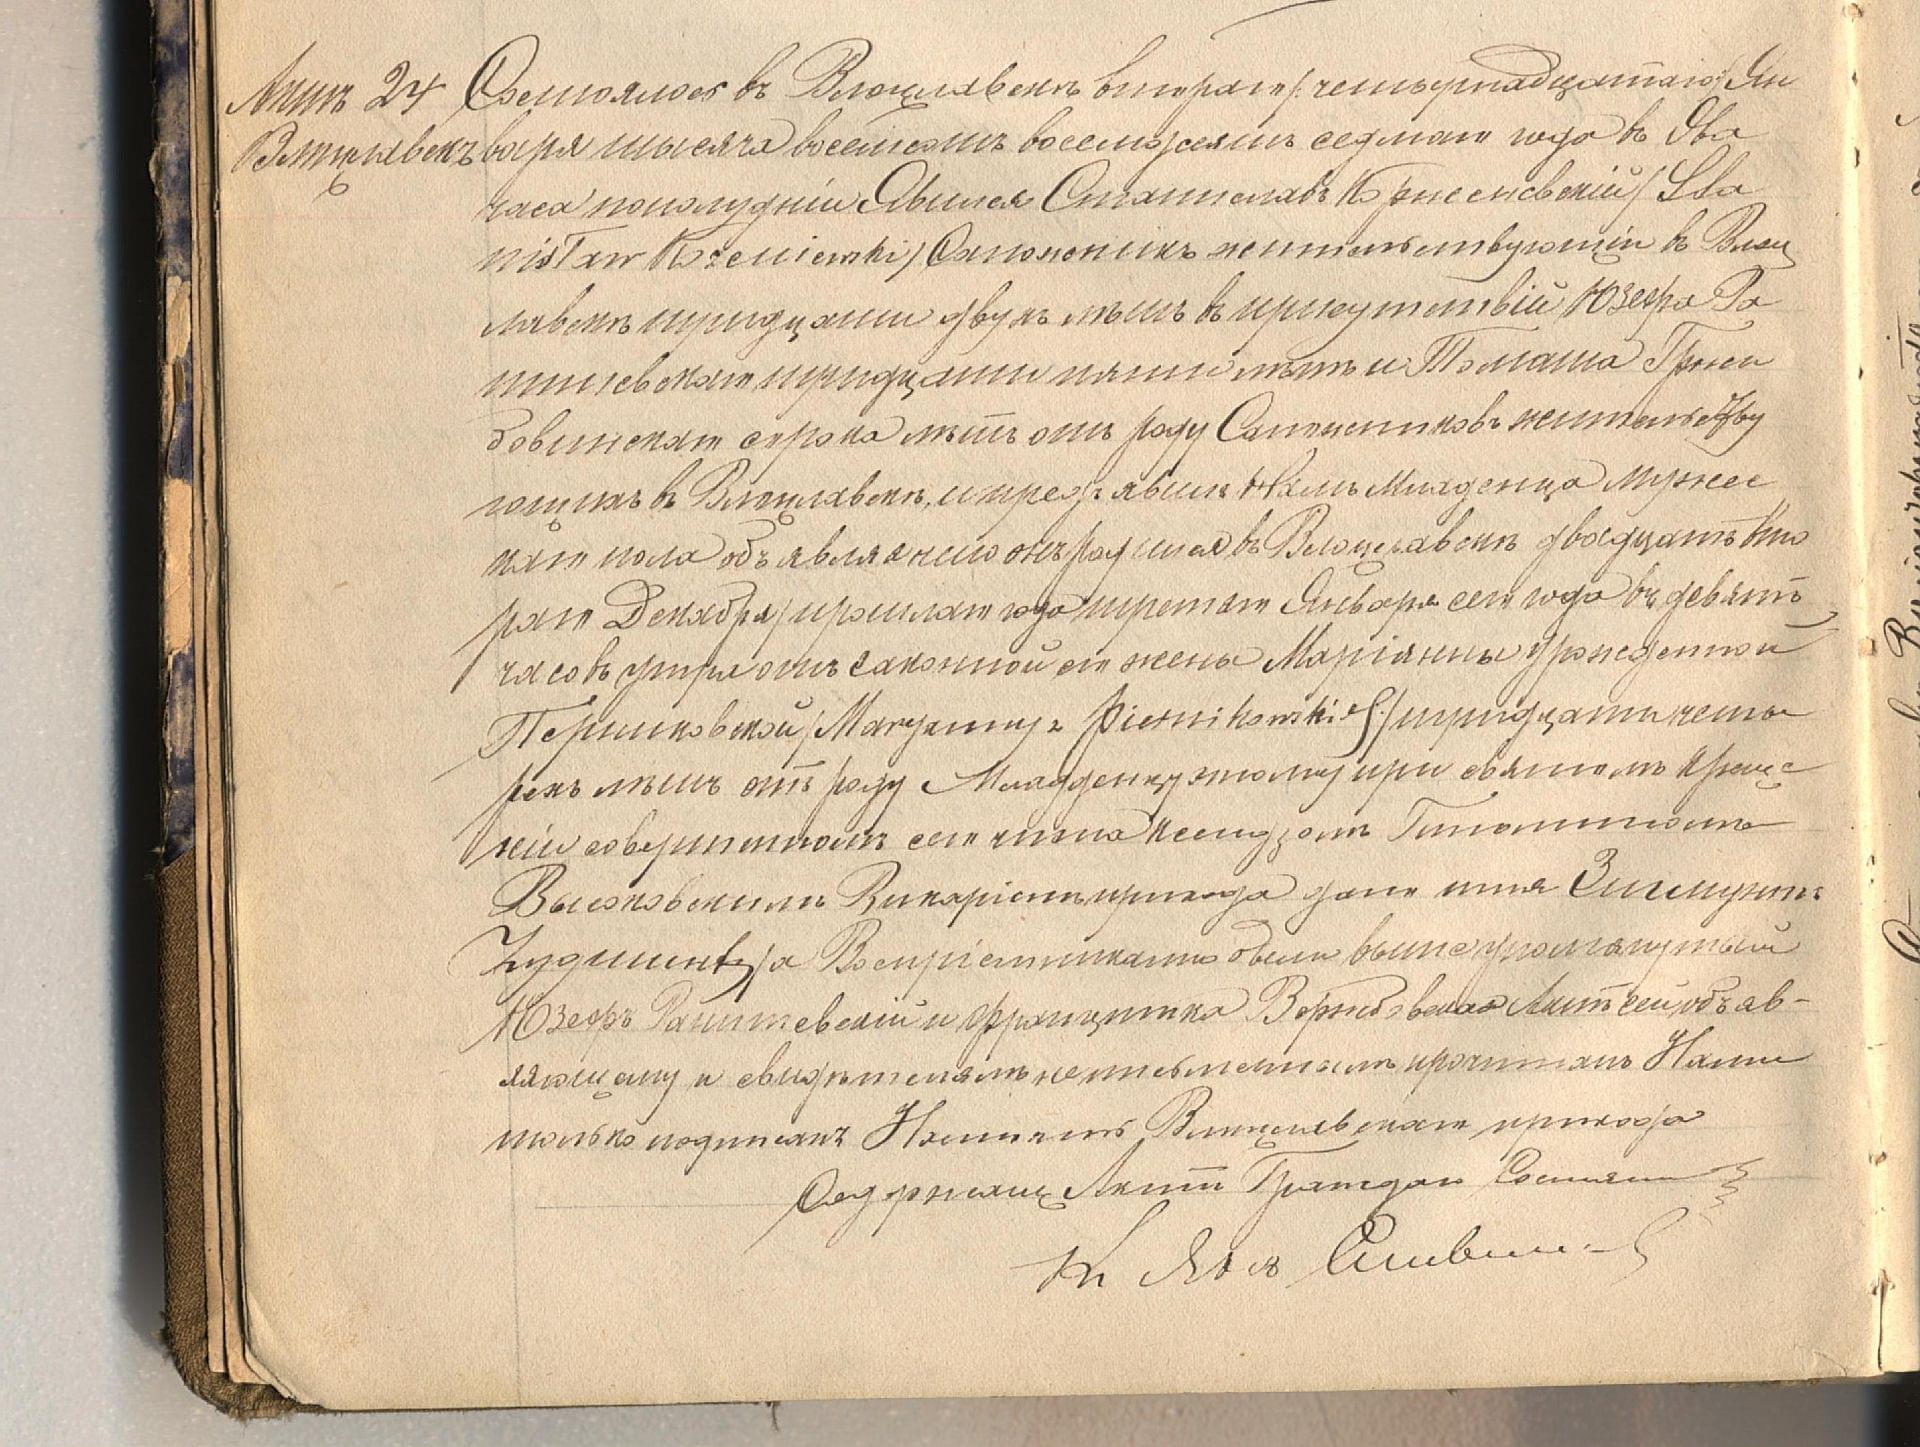 Актъ 24
Влоцлавекъ
Состоялось въ Влоцлавскѣ втораго /:четырнадцатаго/ Ян
варя тысяча восемьсотъ восемьдесятъ седмаго года въ два
часа пополудни Явился Станиславъ Крженевскій / Sta
nisław Krzeniewski / Сапожникъ жительствующій въ Влоц
лавскѣ тридцати двухъ лѣтъ въ присутствіи Юзефа Ра
тевскаго тридцати пяти лѣтъ и Томаша Гржи
бовинскаго сорока лѣтъ отъ роду Сапожниковъ жительству
ющихъ въ Влоцлавскѣ, и предъявилъ Намъ Младенца мужес
каго пола объявляя что онъ родился въ Влоцлавскѣ двадцать вто
раго Декабря / прошлаго года третьяго Января сего года въ девять
часовъ утра отъ законной его жены Маріянны урожденной
Перниковской / Maryanny z Piernikowskich / тридцати четы
рехъ лѣтъ отъ роду Младенцу этому при святомъ Креще
ніи совершенномъ сего числа Ксендзомъ
Высоковскимъ Викаріемъ прихода дано имя Зигмунтъ
а Воспріемниками были вышеупомянутый
Юзефъ и Францишка Вержбовская Актъ сей объяв-
ляющему и свидѣтелямъ неписьменнымъ прочитанъ Нами
только подписанъ Настоят Влоцлавскаго прихода
Содержащ Актъ Граждан Состояни
Кс